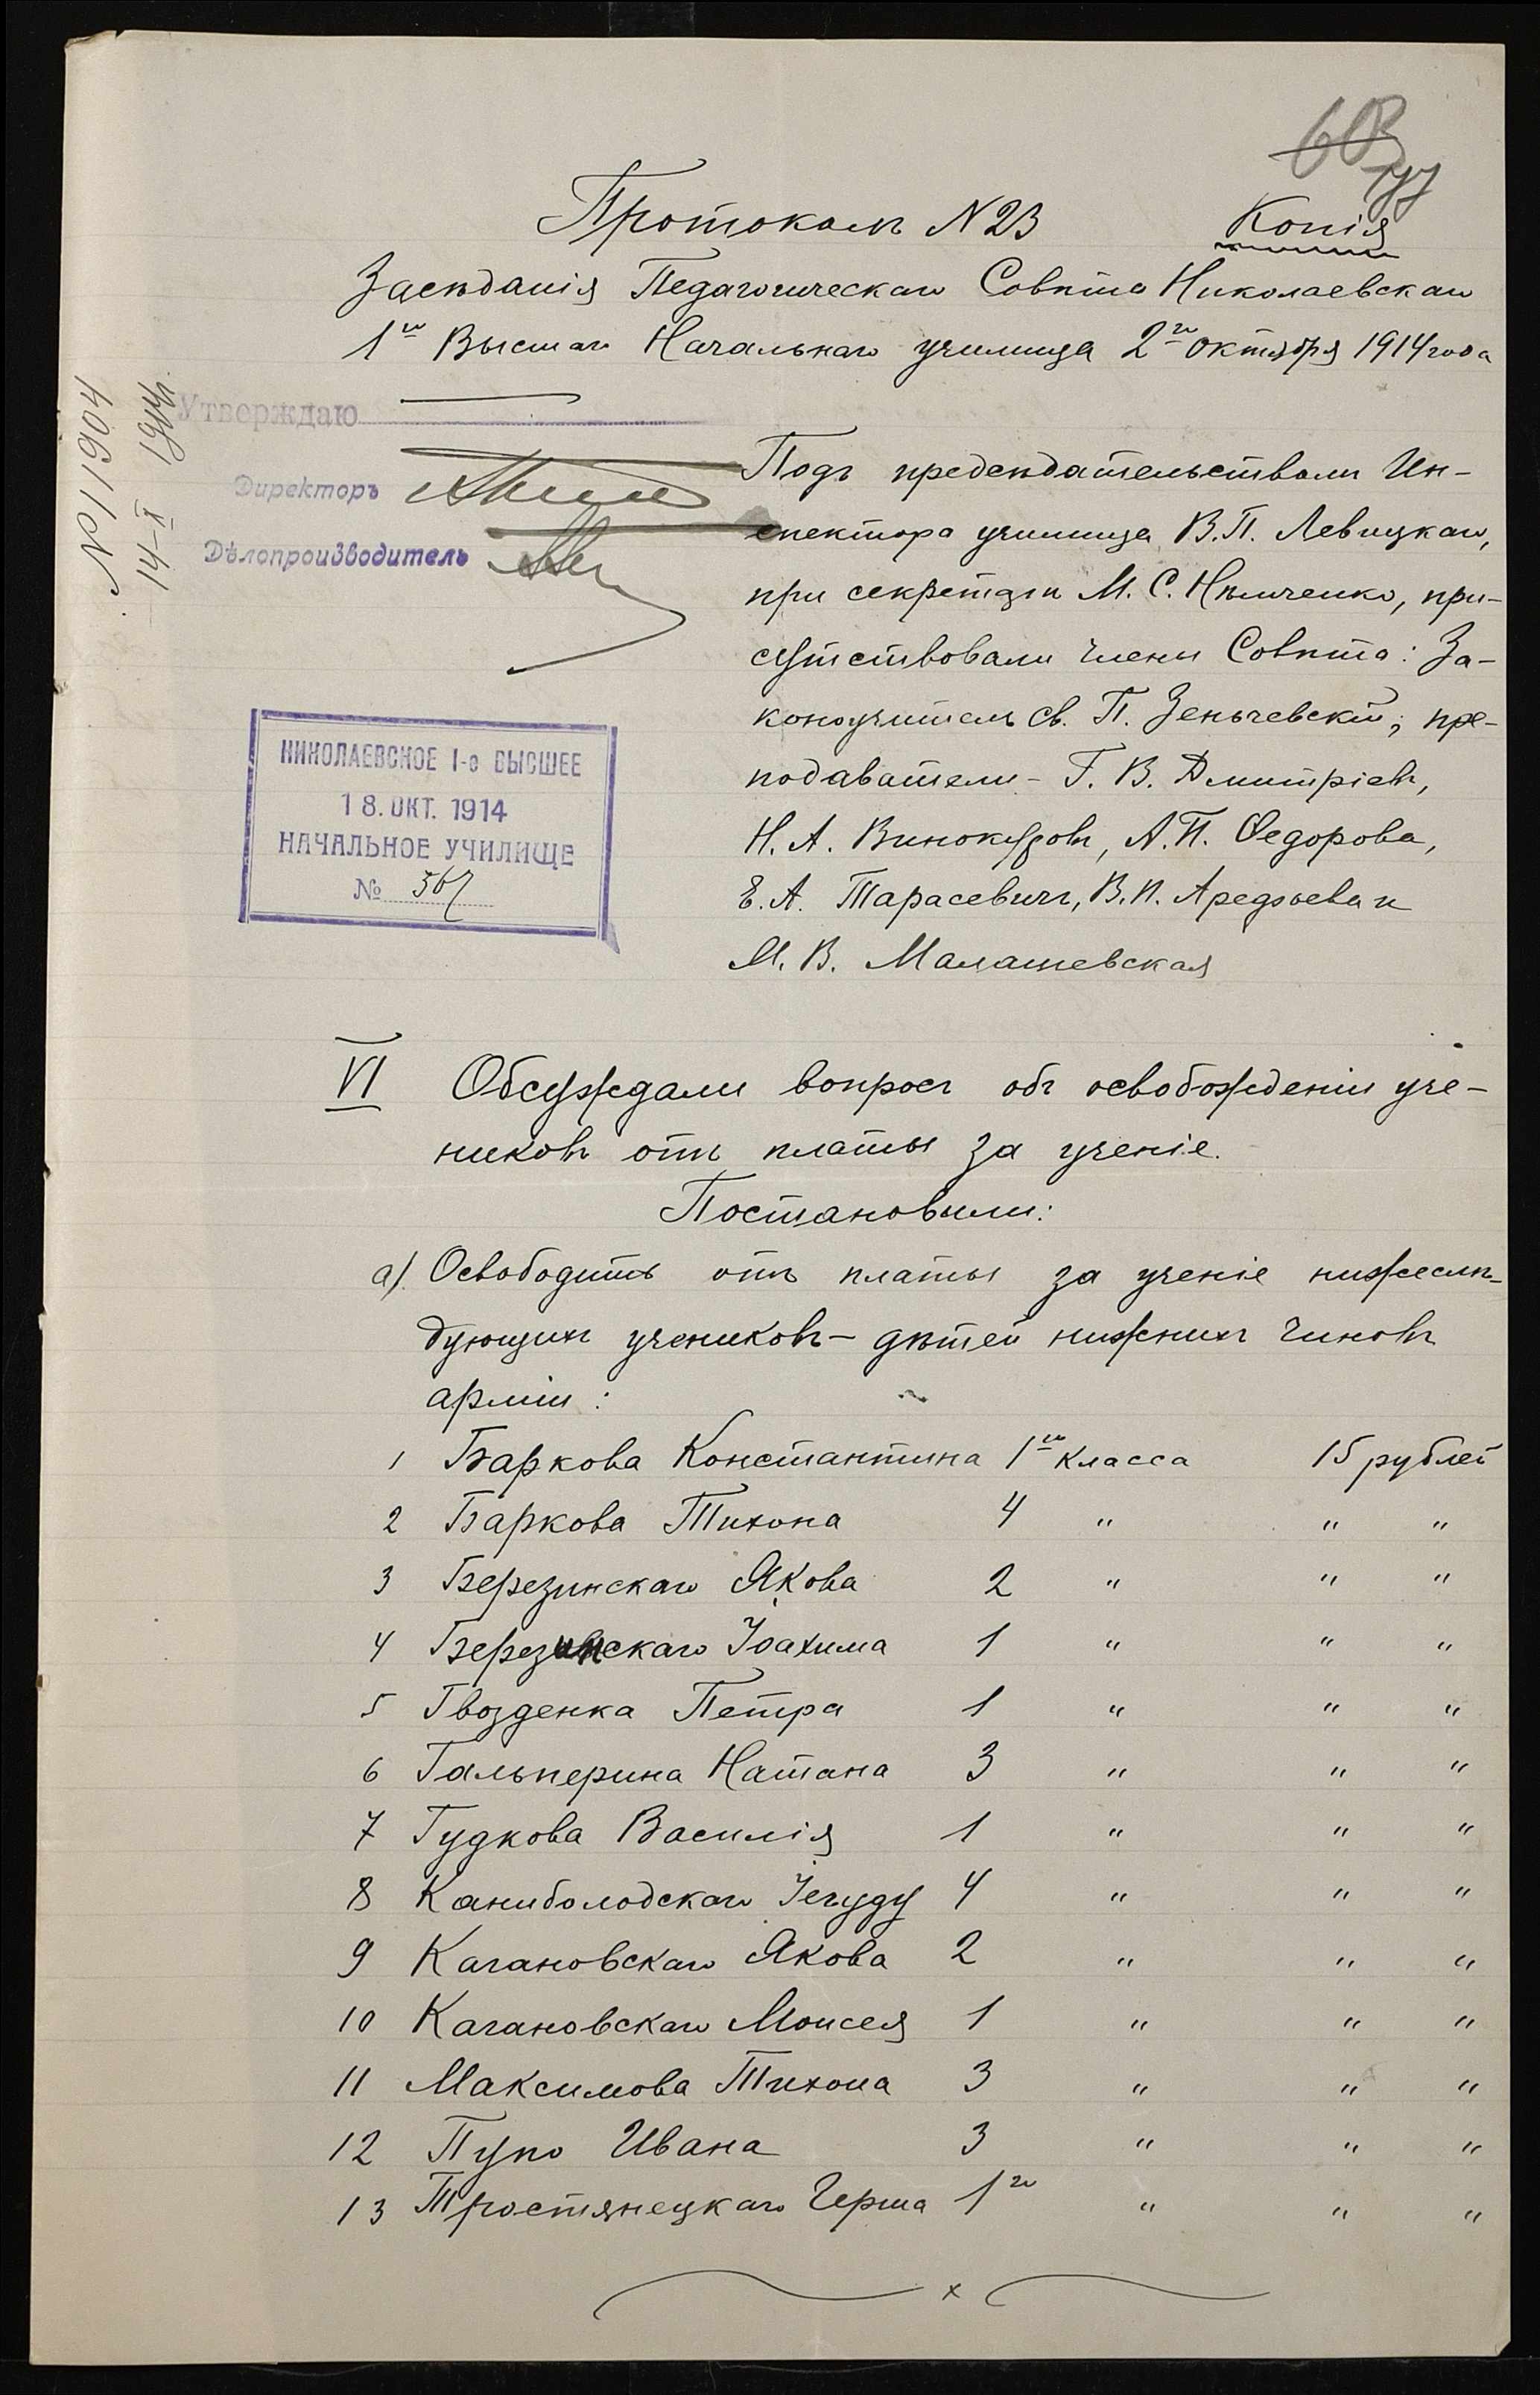 603
Протоколъ N 23
Копія
Засѣданія Педагогическаго Совѣта Николаевскаго
1го Высшаго Начальнаго училища 2го октября 1914 года
№ 11904
14-X 1914г.
Утверждаю
Директоръ
Дѣлопроизводитель
Подъ предсѣдательствомъ Ин-
спектора училища В.П. Левицкаго,
при секретарѣ М. С. Нѣмченко, при-
сутствовали члены Совѣта: За-
коноучитель св. П. Зеньчевскій; пре-
подаватели - Г. В. Дмитріевъ,
Н. А. Винокуровъ, А. П. Ѳедорова,
Е. А. Тарасевичъ, В. П. Аредзьева и
М. В. Малашевская
НИКОЛАЕВСКОЕ 1-е ВЫСШЕЕ
18. ОКТ. 1914
НАЧАЛЬНОЕ УЧИЛИЩЕ
№ 567
VI Обсуждали вопросъ объ освобожденіи уче-
никовъ отъ платы за ученіе.
Постановили:
а). Освободить отъ платы за ученіе нижеслѣ-
дующихъ учениковъ - дѣтей нижнихъ чиновъ
арміи:
1 Баркова Константина 1го класса 15 рублей
2 Баркова Тихона 4 " " "
3 Березинскаго Якова 2 " " "
4 Березинскаго Іоахима 1 " " "
5 Гвозденка Петра 1 " " "
6 Гальперина Натана 3 " " "
7 Гудкова Василія 1 " " "
8 Каниболодскаго Іегуду 4 " " "
9 Кагановскаго Якова 2 " " "
10 Кагановскаго Моисея 1 " " "
11 Максимова Тихона 3 " " "
12 Пупо Ивана 3 " " "
13 Тростянецкаго Герша 1го " " "